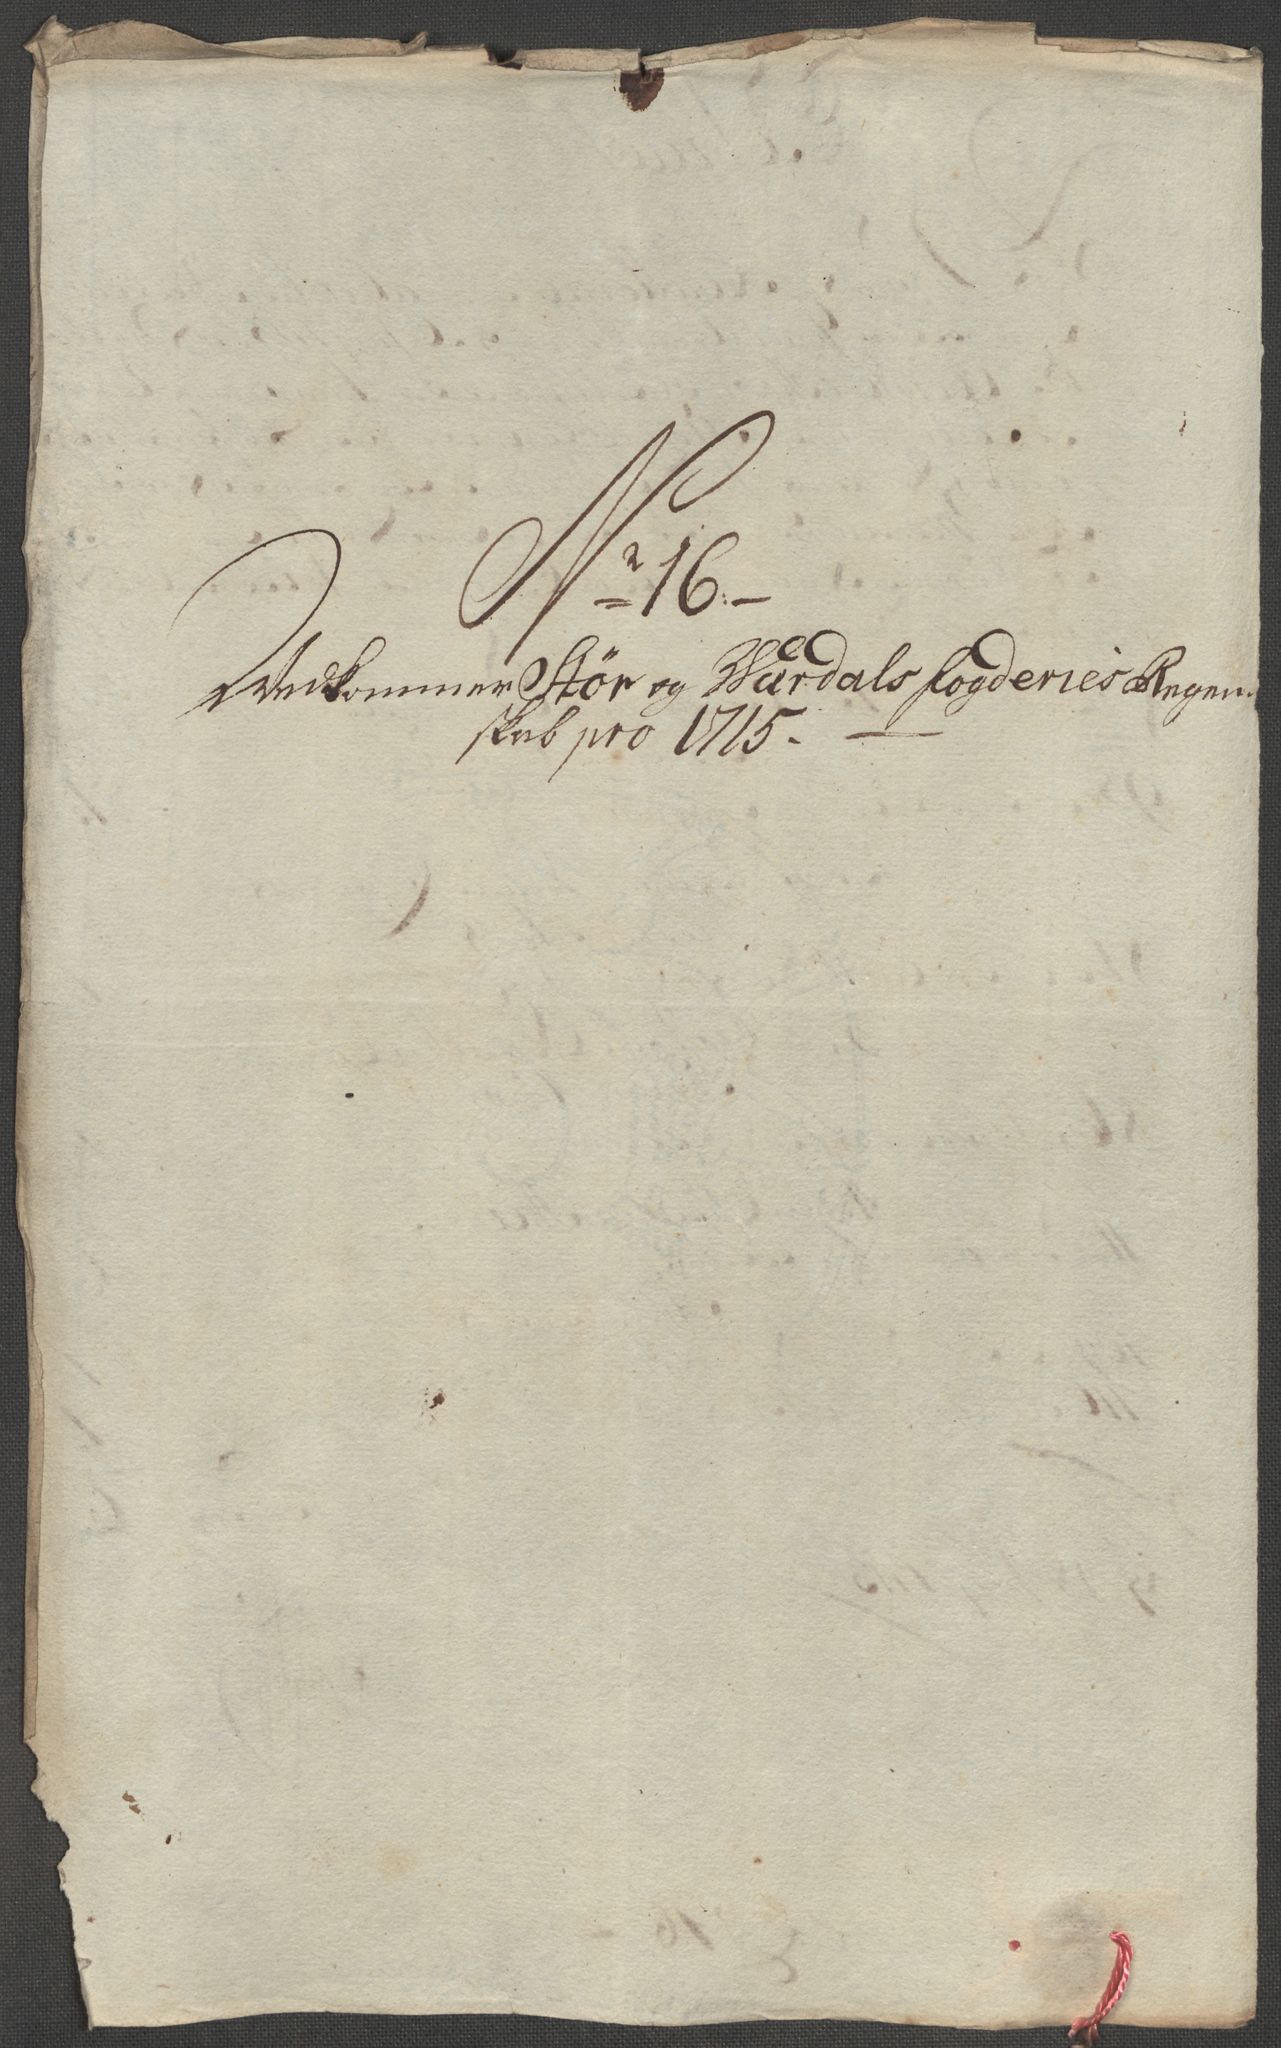 No 16.
Vedkommer Stör og Wærdals fogderies Regen-
skab pro 1715.